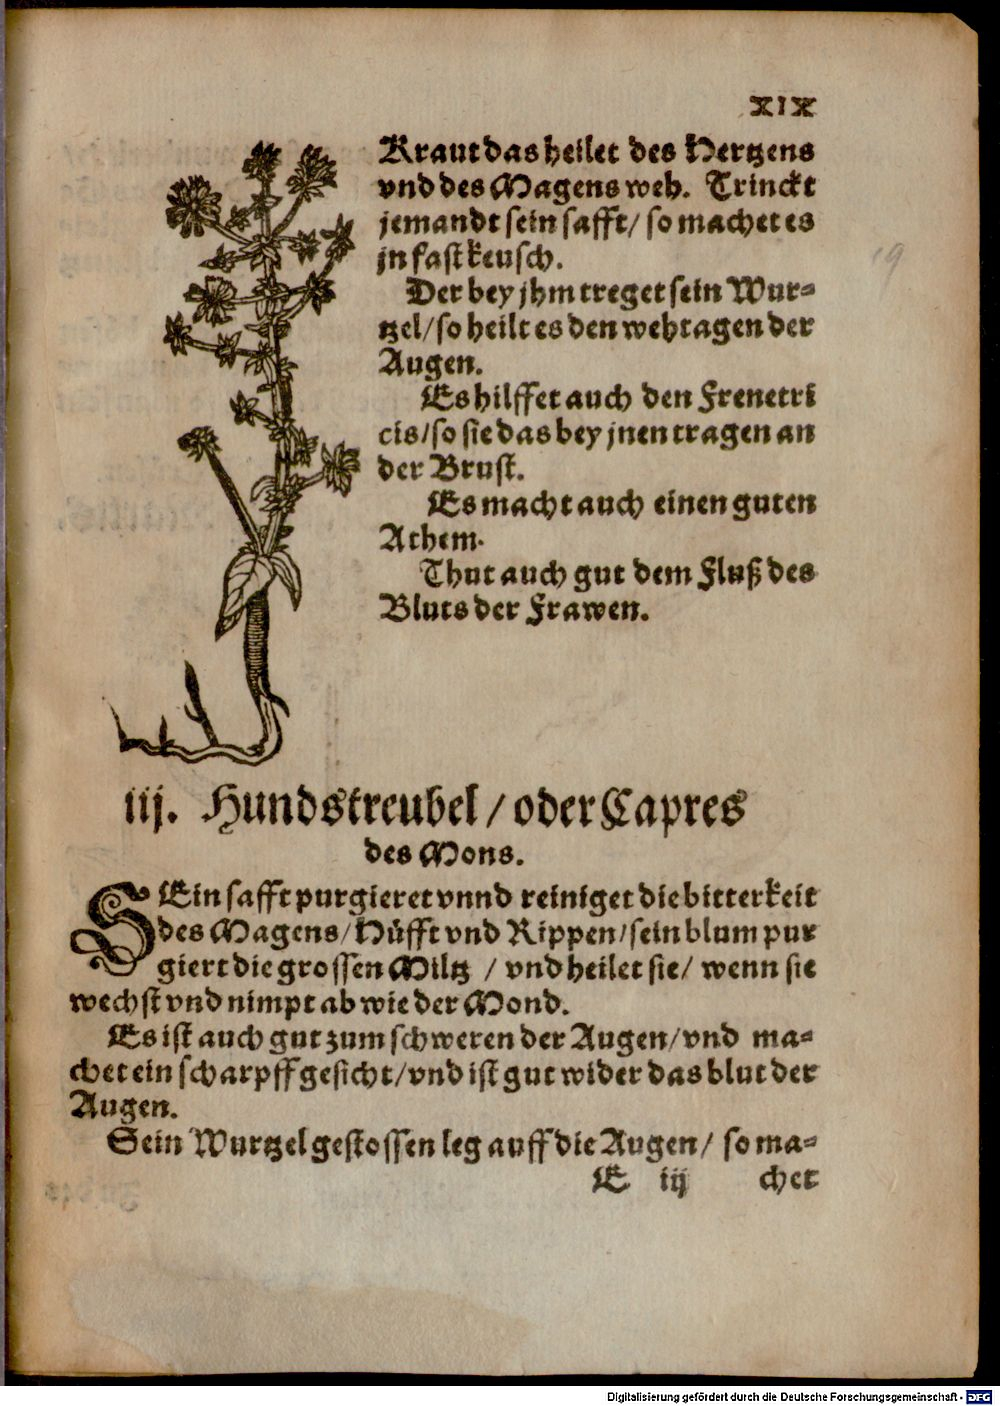 XIX
Kraut das heilet des Hertzens
vnd des Magens weh. Trinckt
jemandt sein safft/ so machet es
jn fast keusch.
Der bey jhm treget sein Wur-
tzel/ so heilt es den wehtagen der
Augen.
Es hilffet auch den Frenetri
cis/ so sie das bey jnen tragen an
der Brust.
Es macht auch einen guten
Athem.
Thut auch gut dem Fluß des
Bluts der Frawen.
19
iij. Hundstreubel/ oder Capres
des Mons.
SEin safft purgieret vnnd reiniget die bitterkeit
des Magens/ Hüfft vnd Rippen/ sein blum pur
giert die grossen Miltz / vnd heilet sie/ wenn sie
wechst vnd nimpt ab wie der Mond.
Es ist auch gut zum schweren der Augen/ vnd ma-
chet ein scharpff gesicht/ vnd ist gut wider das blut der
Augen.
Sein Wurtzel gestossen leg auff die Augen/ so ma-
E iij chet
Digitalisierung gefördert durch die Deutsche Forschungsgemeinschaft - DFG